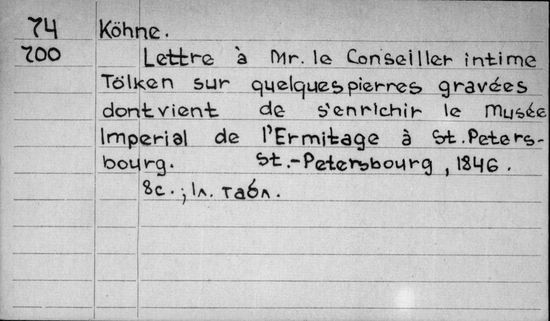 74 Köhne.
700 Lettre à Mr. le Conseiller intime
Tölken sur quelques pierres gravées
dont vient de s'enrichir le Musée
Imperial de l'Ermitage à St. Peters-
bourg. St.-Petersbourg, 1846.
8с.; 1л. табл.